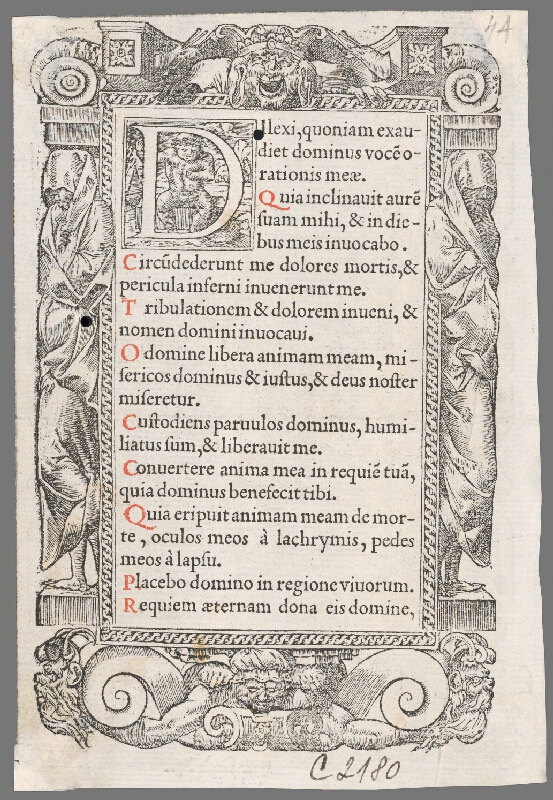 44
DIlexi, quoniam exau-
diet dominus vocē o-
rationis meæ.
Quia inclinauit aurē
suam mihi, & in die-
bus meis inuocabo.
Circūdederunt me dolores mortis, &
pericula inferni inuenerunt me.
Tribulationem & dolorem inueni, &
nomen domini inuocaui.
O domine libera animam meam, mi-
sericos dominus & iustus, & deus noster
miseretur.
Custodiens paruulos dominus, humi-
liatus sum, & liberauit me.
Conuertere anima mea in requiē tuā,
quia dominus benefecit tibi.
Quia eripuit animam meam de mor-
te, oculos meos à lachrymis, pedes
meos à lapsu.
Placebo domino in regione viuorum.
Requiem æternam dona eis domine,
C 2180